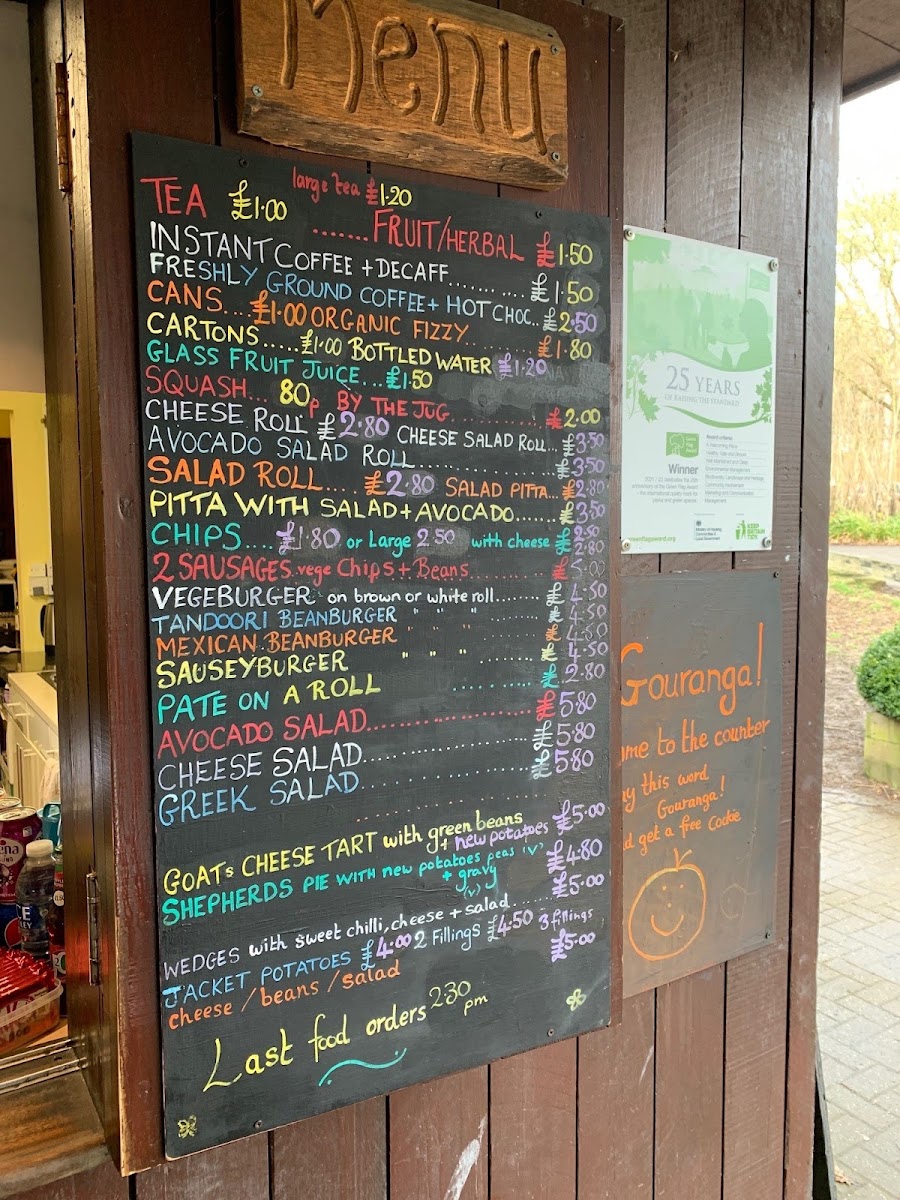 Menu
large tea £1.20
TEA £1.00
.......FRUIT/HERBAL £1.50
INSTANT COFFEE + DECAFF............£1.50
FRESHLY GROUND COFFEE + HOT CHOC..£2.50
CANS....£1.00 ORGANIC FIZZY..........£1.80
CARTONS.....£1.00 BOTTLED WATER £1.20
GLASS FRUIT JUICE...£1.50
SQUASH... 80p BY THE JUG............£2.00
CHEESE ROLL £2.80 CHEESE SALAD ROLL...£3.50
AVOCADO SALAD ROLL..................£3.50
SALAD ROLL....£2.80 SALAD PITTA...£2.80
PITTA WITH SALAD + AVOCADO.......£3.50
CHIPS....£1.80 or Large 2.50 with cheese £2.50 2.80
2 SAUSAGES vege Chips + Beans...........£5.00
VEGEBURGER on brown or white roll.......£4.50
TANDOORI BEANBURGER " " " £4.50
MEXICAN BEANBURGER " " " £4.50
SAUSEYBURGER " " " ......£4.50
PATE ON A ROLL ..........£2.80
AVOCADO SALAD..................£5.80
CHEESE SALAD..................£5.80
GREEK SALAD..................£5.80
GOATs CHEESE TART with green beans
+ new potatoes £5.00
SHEPHERDS PIE WITH new potatoes peas (v)
+ gravy (v) £4.80
WEDGES with sweet chilli, cheese + salad......£5.00
JACKET POTATOES £4.00 2 Fillings £4.50 3 fillings
cheese / beans / salad £5.00
Last food orders 2.30 pm
25 YEARS
OF RAISING THE STANDARD
Green Flag Award
Winner
Award criteria:
A Welcoming Place
Healthy, Safe and Secure
Well Maintained and Clean
Environmental Management
Biodiversity, Landscape and Heritage
Community Involvement
Marketing and Communication
Management
greenflagaward.org
Ministry of Housing, Communities & Local Government
KEEP BRITAIN TIDY
Gouranga!
me to the counter
this word
Gouranga!
get a free Cookie